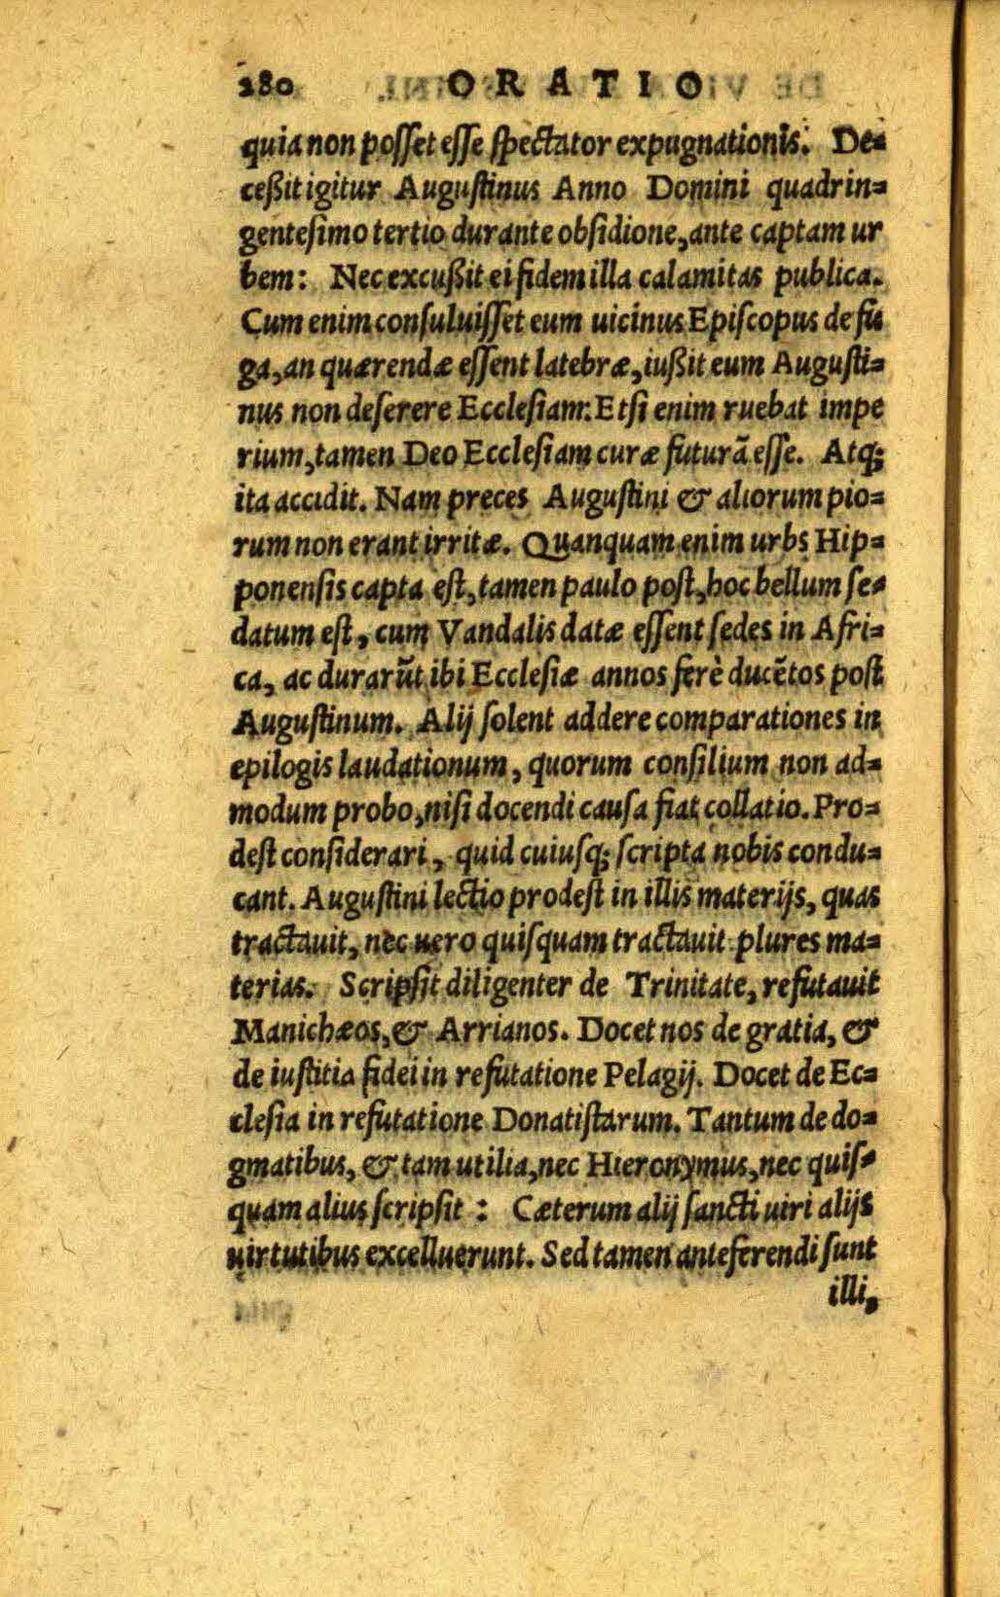 280 ORATIO
quia non posset esse spectator expugnationis. De=
ceßit igitur Augustinus Anno Domini quadrin=
gentesimo tertio durante obsidione, ante captam ur
bem: Nec excußit ei fidem illa calamitas publica.
Cum enim consuluisset eum uicinus Episcopus de fu
ga, an quærendæ essent latebræ, iußit eum Augusti=
nus non deserere Ecclesiam: Etsi enim ruebat impe
rium, tamen Deo Ecclesiam curæ futurã esse. Atq;
ita accidit. Nam preces Augustini & aliorum pio=
rum non erant irritæ. Quanquam enim urbs Hip=
ponensis capta est, tamen paulo post, hoc bellum se=
datum est, cum Vandalis datæ essent sedes in Afri=
ca, ac durarũt ibi Ecclesiæ annos ferè ducẽtos post
Augustinum. Alij solent addere comparationes in
epilogis laudationum, quorum consilium non ad=
modum probo, nisi docendi causa fiat collatio. Pro=
dest considerari, quid cuiusq; scripta nobis condu=
cant. Augustini lectio prodest in illis materijs, quas
tractauit, nec uero quisquam tractauit plures ma=
terias. Scripsit diligenter de Trinitate, refutauit
Manichæos, & Arrianos. Docet nos de gratia, &
de iustitia fidei in refutatione Pelagij. Docet de Ec=
clesia in refutatione Donatistarum. Tantum de do=
gmatibus, & tam utilia, nec Hieronymus, nec quis=
quam alius scripsit: Cæterum alij sancti uiri alijs
uirtutibus excelluerunt. Sed tamen anteferendi sunt
illi,